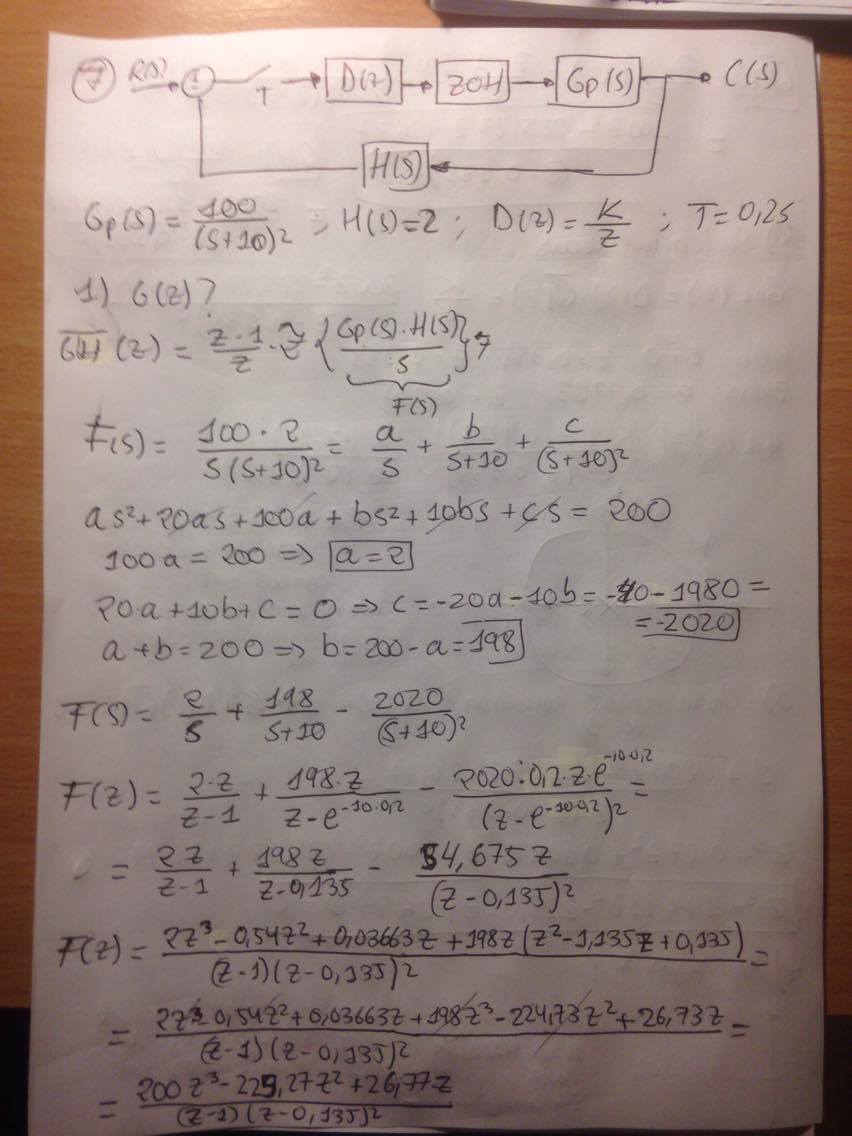 7 R(s) ± T D(z) ZOH Gp(s) C(s)
H(s)
Gp(s) = 100/(s+10)² ; H(s)=2 ; D(z) = K/z ; T=0,2s
1) G(z)?
GH(z) = z-1/z · Z{Gp(s)·H(s)/s}
F(s)
F(s) = 100·2/s(s+10)² = a/s + b/s+10 + c/(s+10)²
as²+20as+100a+bs²+10bs+cs = 200
100a = 200 => a=2
20a+10b+c=0 => c=-20a-10b=-40-1980=
=-2020
a+b=200 => b=200-a=198
F(s) = 2/s + 198/s+10 - 2020/(s+10)²
F(z) = 2·z/z-1 + 198·z/z-e^-10·0,2 - 2020·0,2·z·e^-10·0,2/(z-e^-10·0,2)² =
= 2z/z-1 + 198z/z-0,135 - 54,675z/(z-0,135)²
F(z) = 2z³-0,54z²+0,03663z+198z(z²-1,135z+0,135)/(z-1)(z-0,135)² =
= 2z³-0,54z²+0,03663z+198z³-224,73z²+26,73z/(z-1)(z-0,135)² =
= 200z³-225,27z²+26,77z/(z-1)(z-0,135)²